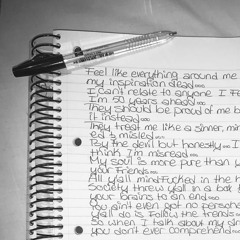 Feel like everything around me
my inspiration dead...
I can't relate to anyone I
I'm 50 years ahead...
They should be proud of me b
it instead...
They treat me like a sinner, min
ed & misled...
By the devil but honestly
think I'm misread...
My soul is more pure than y
your Friends...
All y'all mindfucked in the h
Society threw y'all in a box
your brains to an end...
You ain't even got no persona
y'all do is Follow the trends
So when I talk about my
you don't ever comprehend...